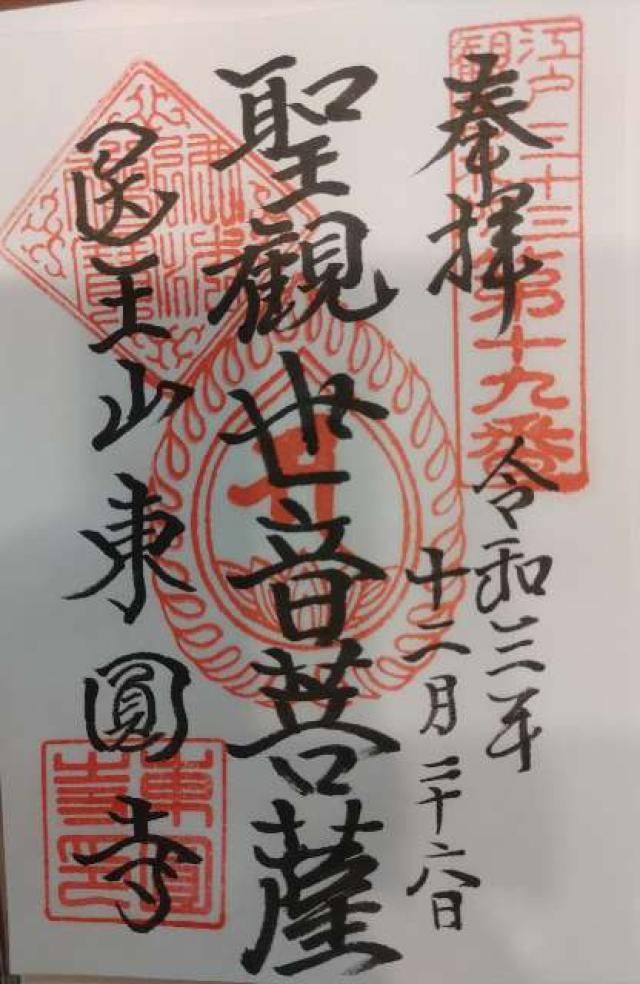 江戸三十三
観音札所第十九番
奉拝
令和三年
十二月二十六日
聖観世音菩薩
医王山東圓寺
佛法僧寶
東圓寺印